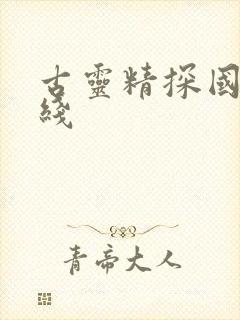 古靈精探國
綫
青帝大人